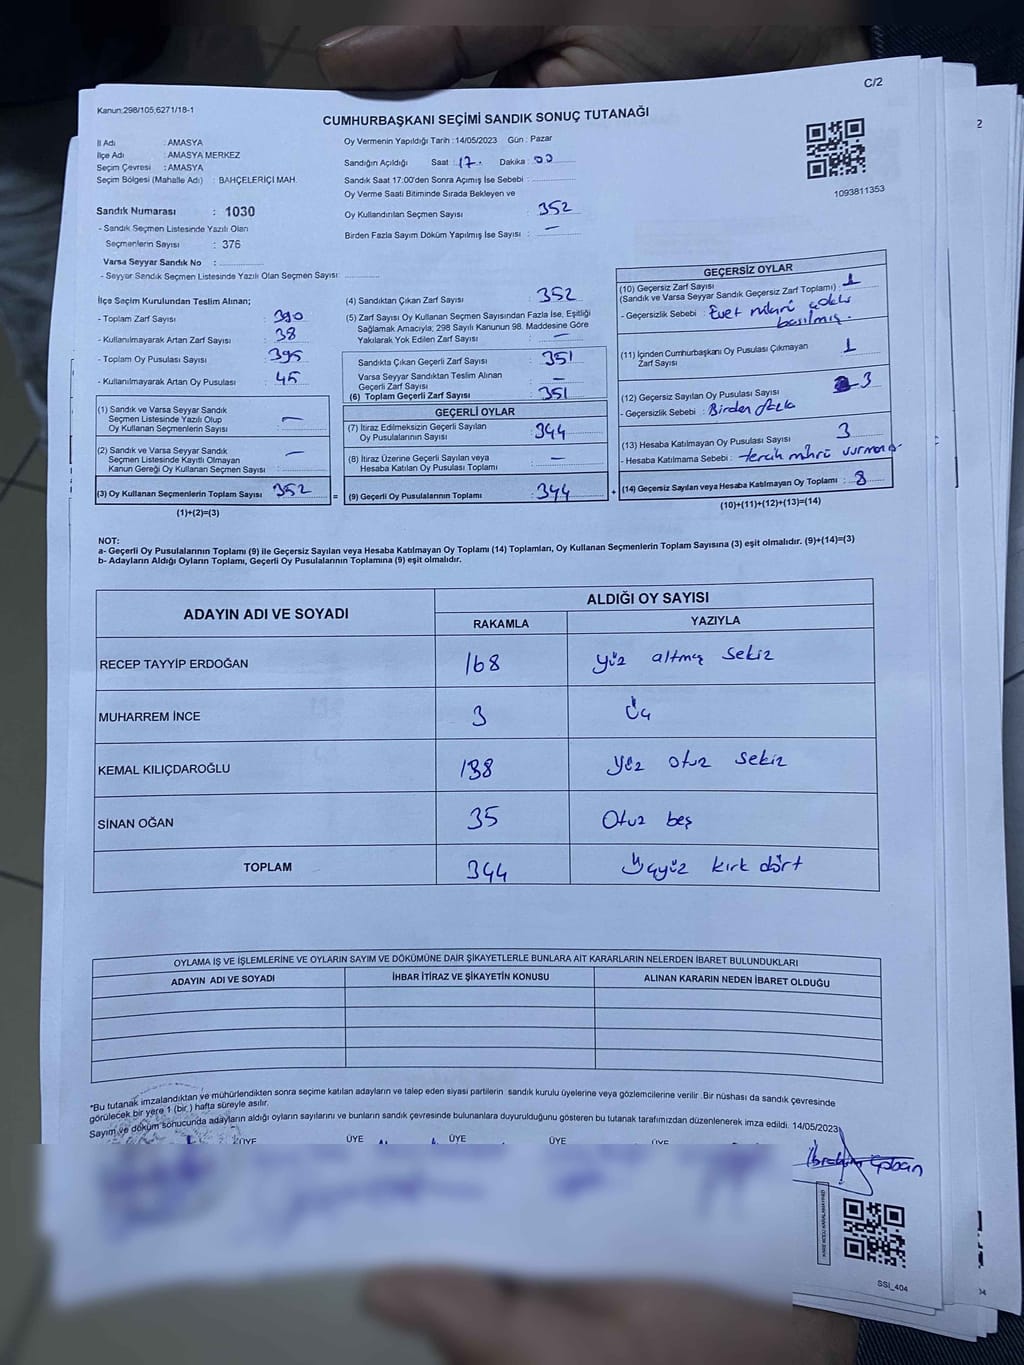 C/2
Kanun:298/105,6271/18-1
CUMHURBAŞKANI SEÇİMİ SANDIK SONUÇ TUTANAĞI
İl Adı : AMASYA
İlçe Adı : AMASYA MERKEZ
Seçim Çevresi : AMASYA
Seçim Bölgesi (Mahalle Adı) : BAHÇELERİÇİ MAH.
Sandık Numarası : 1030
- Sandık Seçmen Listesinde Yazılı Olan
Seçmenlerin Sayısı : 376
Varsa Seyyar Sandık No :
- Seyyar Sandık Seçmen Listesinde Yazılı Olan Seçmen Sayısı:
Oy Vermenin Yapıldığı Tarih : 14/05/2023 Gün : Pazar
Sandığın Açıldığı Saat : 17. Dakika : 00
Sandık Saat 17:00'den Sonra Açımış İse Sebebi :
Oy Verme Saati Bitiminde Sırada Bekleyen ve
Oy Kullandırılan Seçmen Sayısı : 352
Birden Fazla Sayım Döküm Yapılmış İse Sayısı : —
1093811353
İlçe Seçim Kurulundan Teslim Alınan;
- Toplam Zarf Sayısı : 390
- Kullanılmayarak Artan Zarf Sayısı : 38
- Toplam Oy Pusulası Sayısı : 395
- Kullanılmayarak Artan Oy Pusulası : 45
(1) Sandık ve Varsa Seyyar Sandık
Seçmen Listesinde Yazılı Olup
Oy Kullanan Seçmenlerin Sayısı : —
(2) Sandık ve Varsa Seyyar Sandık
Seçmen Listesinde Kayıtlı Olmayan
Kanun Gereği Oy Kullanan Seçmen Sayısı : —
(3) Oy Kullanan Seçmenlerin Toplam Sayısı : 352 =
(1)+(2)=(3)
(4) Sandıktan Çıkan Zarf Sayısı : 352
(5) Zarf Sayısı Oy Kullanan Seçmen Sayısından Fazla İse, Eşitliği
Sağlamak Amacıyla; 298 Sayılı Kanunun 98. Maddesine Göre
Yakılarak Yok Edilen Zarf Sayısı : —
Sandıkta Çıkan Geçerli Zarf Sayısı : 351
Varsa Seyyar Sandıktan Teslim Alınan
Geçerli Zarf Sayısı : —
(6) Toplam Geçerli Zarf Sayısı : 351
GEÇERLİ OYLAR
(7) İtiraz Edilmeksizin Geçerli Sayılan
Oy Pusulalarının Sayısı : 344
(8) İtiraz Üzerine Geçerli Sayılan veya
Hesaba Katılan Oy Pusulası Toplamı : —
(9) Geçerli Oy Pusulalarının Toplamı : 344 +
GEÇERSİZ OYLAR
(10) Geçersiz Zarf Sayısı
(Sandık ve Varsa Seyyar Sandık Geçersiz Zarf Toplamı) : 1
- Geçersizlik Sebebi : Evet mührü
basılmış.
(11) İçinden Cumhurbaşkanı Oy Pusulası Çıkmayan
Zarf Sayısı : 1
(12) Geçersiz Sayılan Oy Pusulası Sayısı : 3
- Geçersizlik Sebebi : Birden fazla
(13) Hesaba Katılmayan Oy Pusulası Sayısı : 3
- Hesaba Katılmama Sebebi : tercih mührü
(14) Geçersiz Sayılan veya Hesaba Katılmayan Oy Toplamı : 8
(10)+(11)+(12)+(13)=(14)
NOT:
a- Geçerli Oy Pusulalarının Toplamı (9) ile Geçersiz Sayılan veya Hesaba Katılmayan Oy Toplamı (14) Toplamları, Oy Kullanan Seçmenlerin Toplam Sayısına (3) eşit olmalıdır. (9)+(14)=(3)
b- Adayların Aldığı Oyların Toplamı, Geçerli Oy Pusulalarının Toplamına (9) eşit olmalıdır.
ADAYIN ADI VE SOYADI
ALDIĞI OY SAYISI
RAKAMLA YAZIYLA
RECEP TAYYİP ERDOĞAN 168 yüz altmış sekiz
MUHARREM İNCE 3 Üç
KEMAL KILIÇDAROĞLU 138 yüz otuz sekiz
SİNAN OĞAN 35 Otuz beş
TOPLAM 344 Üçyüz kırk dört
OYLAMA İŞ VE İŞLEMLERİNE VE OYLARIN SAYIM VE DÖKÜMÜNE DAİR ŞİKAYETLERLE BUNLARA AİT KARARLARIN NELERDEN İBARET BULUNDUKLARI
ADAYIN ADI VE SOYADI İHBAR İTİRAZ VE ŞİKAYETİN KONUSU ALINAN KARARIN NEDEN İBARET OLDUĞU
*Bu tutanak imzalandıktan ve mühürlendikten sonra seçime katılan adayların ve talep eden siyasi partilerin sandık kurulu üyelerine veya gözlemcilerine verilir .Bir nüshası da sandık çevresinde
görülecek bir yere 1 (bir ) hafta süreyle asılır.
Sayım ve döküm sonucunda adayların aldığı oyların sayılarını ve bunların sandık çevresinde bulunanlara duyurulduğunu gösteren bu tutanak tarafımızdan düzenlenerek imza edildi. 14/05/2023
ÜYE ÜYE ÜYE ÜYE ÜYE
İbrahim Çoban
KARE KODU KARALAMAYINIZ
SSI_404